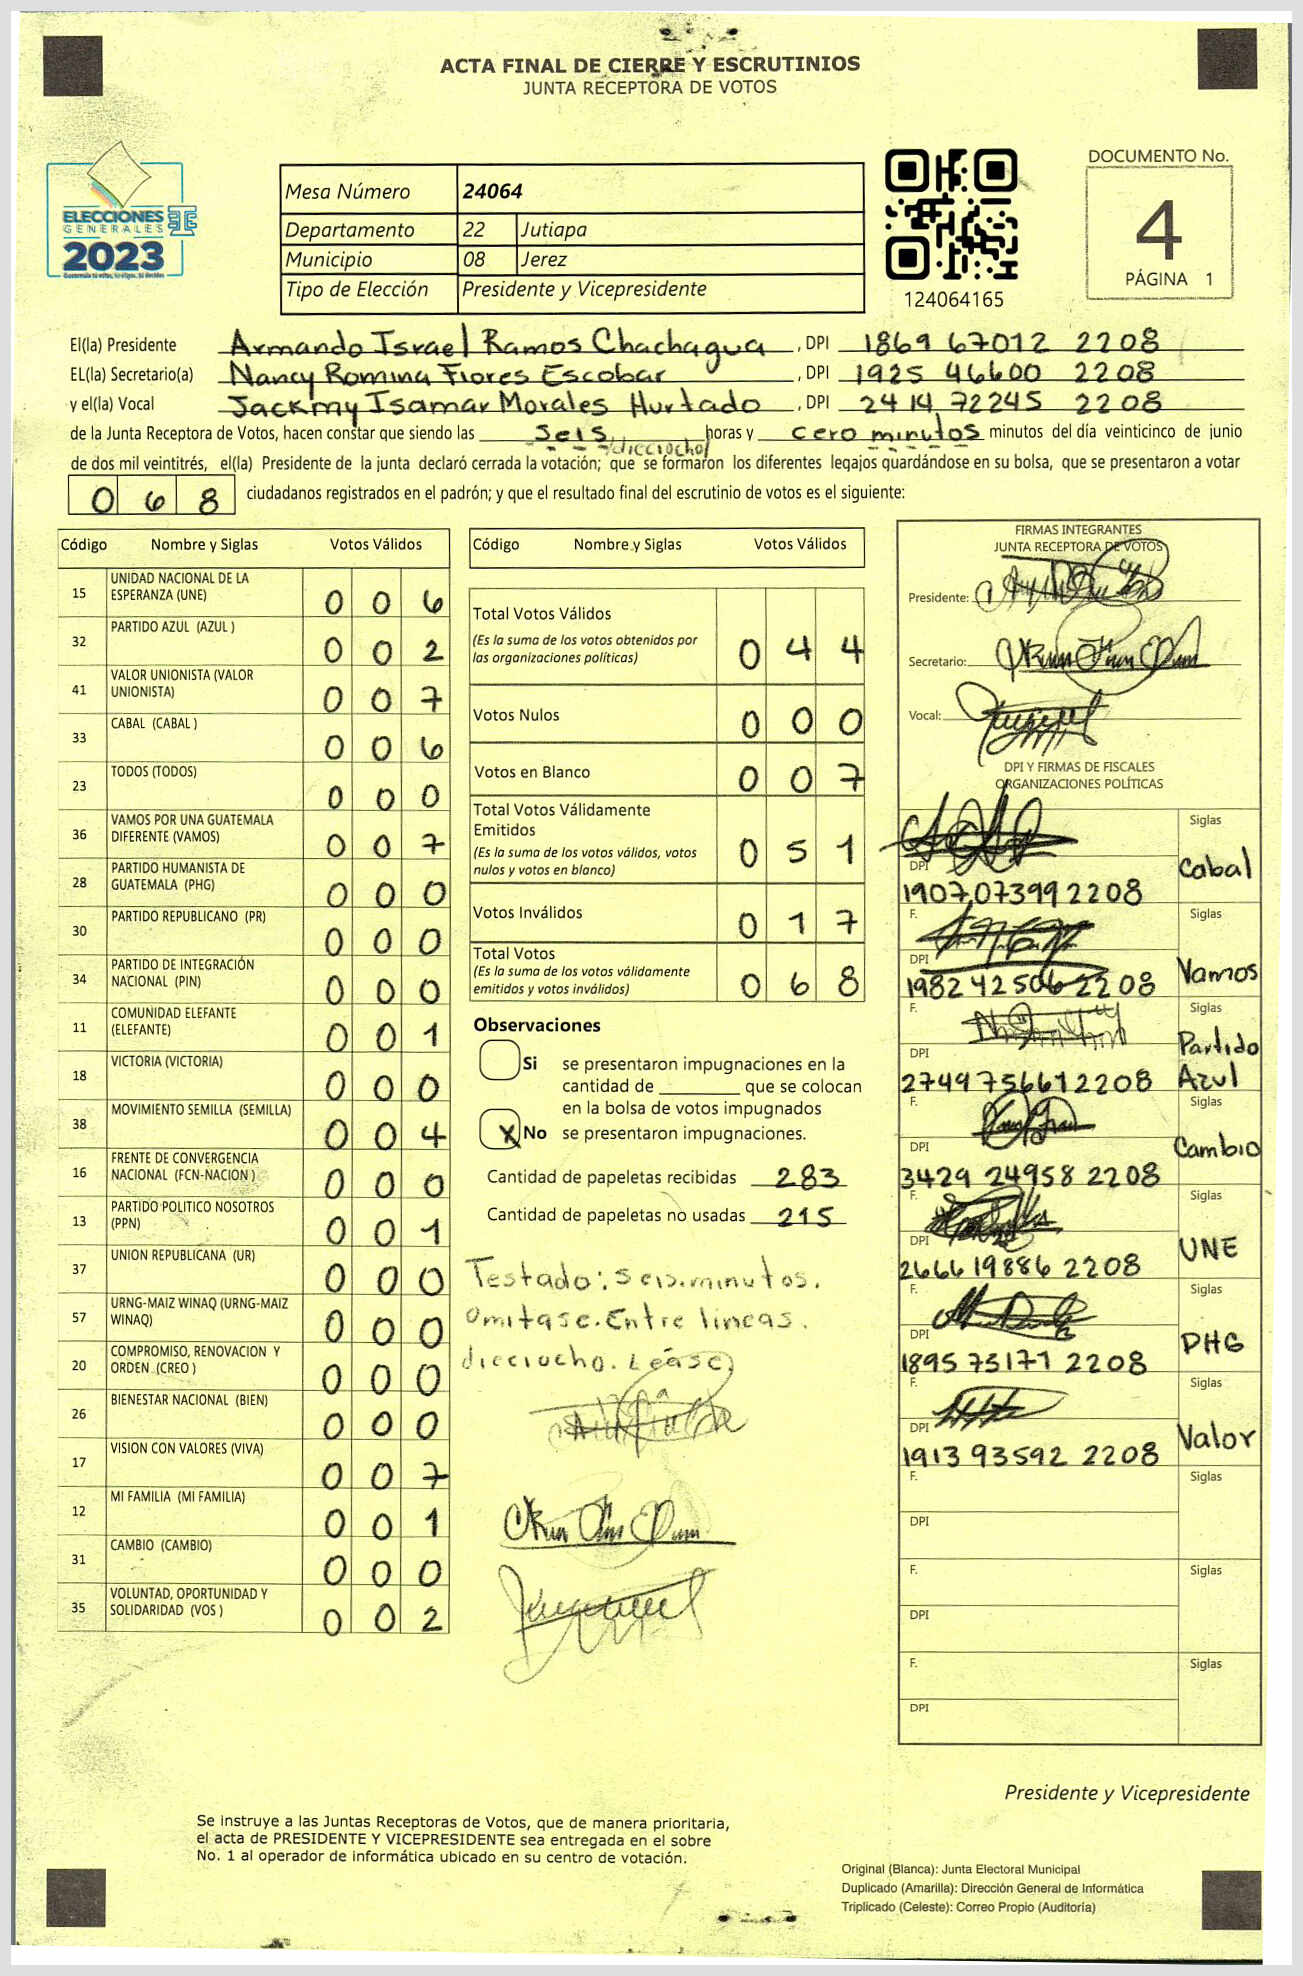 ACTA FINAL DE CIERRE Y ESCRUTINIOS
JUNTA RECEPTORA DE VOTOS
ELECCIONES
GENERALES
2023
Mesa Número 24064
Departamento 22 Jutiapa
Municipio 08 Jerez
Tipo de Elección Presidente y Vicepresidente
124064165
DOCUMENTO No.
4
PÁGINA 1
El(la) Presidente Armando Israel Ramos Chachagua, DPI 1869 67012 2208
EL(la) Secretario(a) Nancy Romina Flores Escobar, DPI 1925 46600 2208
y el(la) Vocal Jackmy Isamar Morales Hurtado, DPI 2414 72245 2208
de la Junta Receptora de Votos, hacen constar que siendo las seis horas y cero minutos minutos del día veinticinco de junio
dieciocho
de dos mil veintitrés, el(la) Presidente de la junta declaró cerrada la votación; que se formaron los diferentes legajos guardándose en su bolsa, que se presentaron a votar
068 ciudadanos registrados en el padrón; y que el resultado final del escrutinio de votos es el siguiente:
Código Nombre y Siglas Votos Válidos
15 UNIDAD NACIONAL DE LA ESPERANZA (UNE) 006
32 PARTIDO AZUL (AZUL ) 002
41 VALOR UNIONISTA (VALOR UNIONISTA) 007
33 CABAL (CABAL ) 006
23 TODOS (TODOS) 000
36 VAMOS POR UNA GUATEMALA DIFERENTE (VAMOS) 007
28 PARTIDO HUMANISTA DE GUATEMALA (PHG) 000
30 PARTIDO REPUBLICANO (PR) 000
34 PARTIDO DE INTEGRACIÓN NACIONAL (PIN) 000
11 COMUNIDAD ELEFANTE (ELEFANTE) 001
18 VICTORIA (VICTORIA) 000
38 MOVIMIENTO SEMILLA (SEMILLA) 004
16 FRENTE DE CONVERGENCIA NACIONAL (FCN-NACION ) 000
13 PARTIDO POLITICO NOSOTROS (PPN) 001
37 UNION REPUBLICANA (UR) 000
57 URNG-MAIZ WINAQ (URNG-MAIZ WINAQ) 000
20 COMPROMISO, RENOVACION Y ORDEN (CREO ) 000
26 BIENESTAR NACIONAL (BIEN) 000
17 VISION CON VALORES (VIVA) 007
12 MI FAMILIA (MI FAMILIA) 001
31 CAMBIO (CAMBIO) 000
35 VOLUNTAD, OPORTUNIDAD Y SOLIDARIDAD (VOS ) 002
Código Nombre y Siglas Votos Válidos
Total Votos Válidos 044
(Es la suma de los votos obtenidos por
las organizaciones políticas)
Votos Nulos 000
Votos en Blanco 007
Total Votos Válidamente
Emitidos 051
(Es la suma de los votos válidos, votos
nulos y votos en blanco)
Votos Inválidos 017
Total Votos 068
(Es la suma de los votos válidamente
emitidos y votos inválidos)
Observaciones
Si se presentaron impugnaciones en la
cantidad de que se colocan
en la bolsa de votos impugnados
X No se presentaron impugnaciones.
Cantidad de papeletas recibidas 283
Cantidad de papeletas no usadas 215
Testado: seis.minutos.
omitase. Entre lineas.
dieciocho. Léase.
FIRMAS INTEGRANTES
JUNTA RECEPTORA DE VOTOS
Presidente:
Secretario:
Vocal:
DPI Y FIRMAS DE FISCALES
ORGANIZACIONES POLÍTICAS
Siglas
Cabal
DPI
1907 07399 2208
F. Siglas
Vamos
DPI
1982 42506 2208
F. Siglas
Partido
Azul
DPI
2749 75661 2208
F. Siglas
Cambio
DPI
3429 24958 2208
F. Siglas
UNE
DPI
2666 19886 2208
F. Siglas
PHG
DPI
1895 75177 2208
F. Siglas
Valor
DPI
1913 93592 2208
F. Siglas
DPI
F. Siglas
DPI
F. Siglas
DPI
Presidente y Vicepresidente
Se instruye a las Juntas Receptoras de Votos, que de manera prioritaria,
el acta de PRESIDENTE Y VICEPRESIDENTE sea entregada en el sobre
No. 1 al operador de informática ubicado en su centro de votación.
Original (Blanca): Junta Electoral Municipal
Duplicado (Amarilla): Dirección General de Informática
Triplicado (Celeste): Correo Propio (Auditoría)